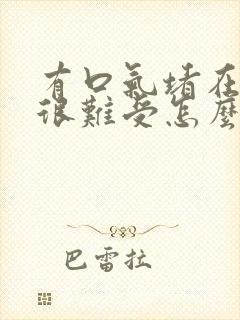 有口氣堵在
很難受怎麼
巴雷拉